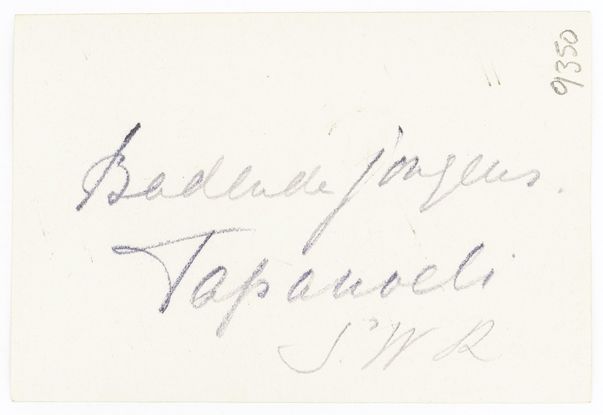 9350
Badende jongens.
Tapanoeli
S.W.K